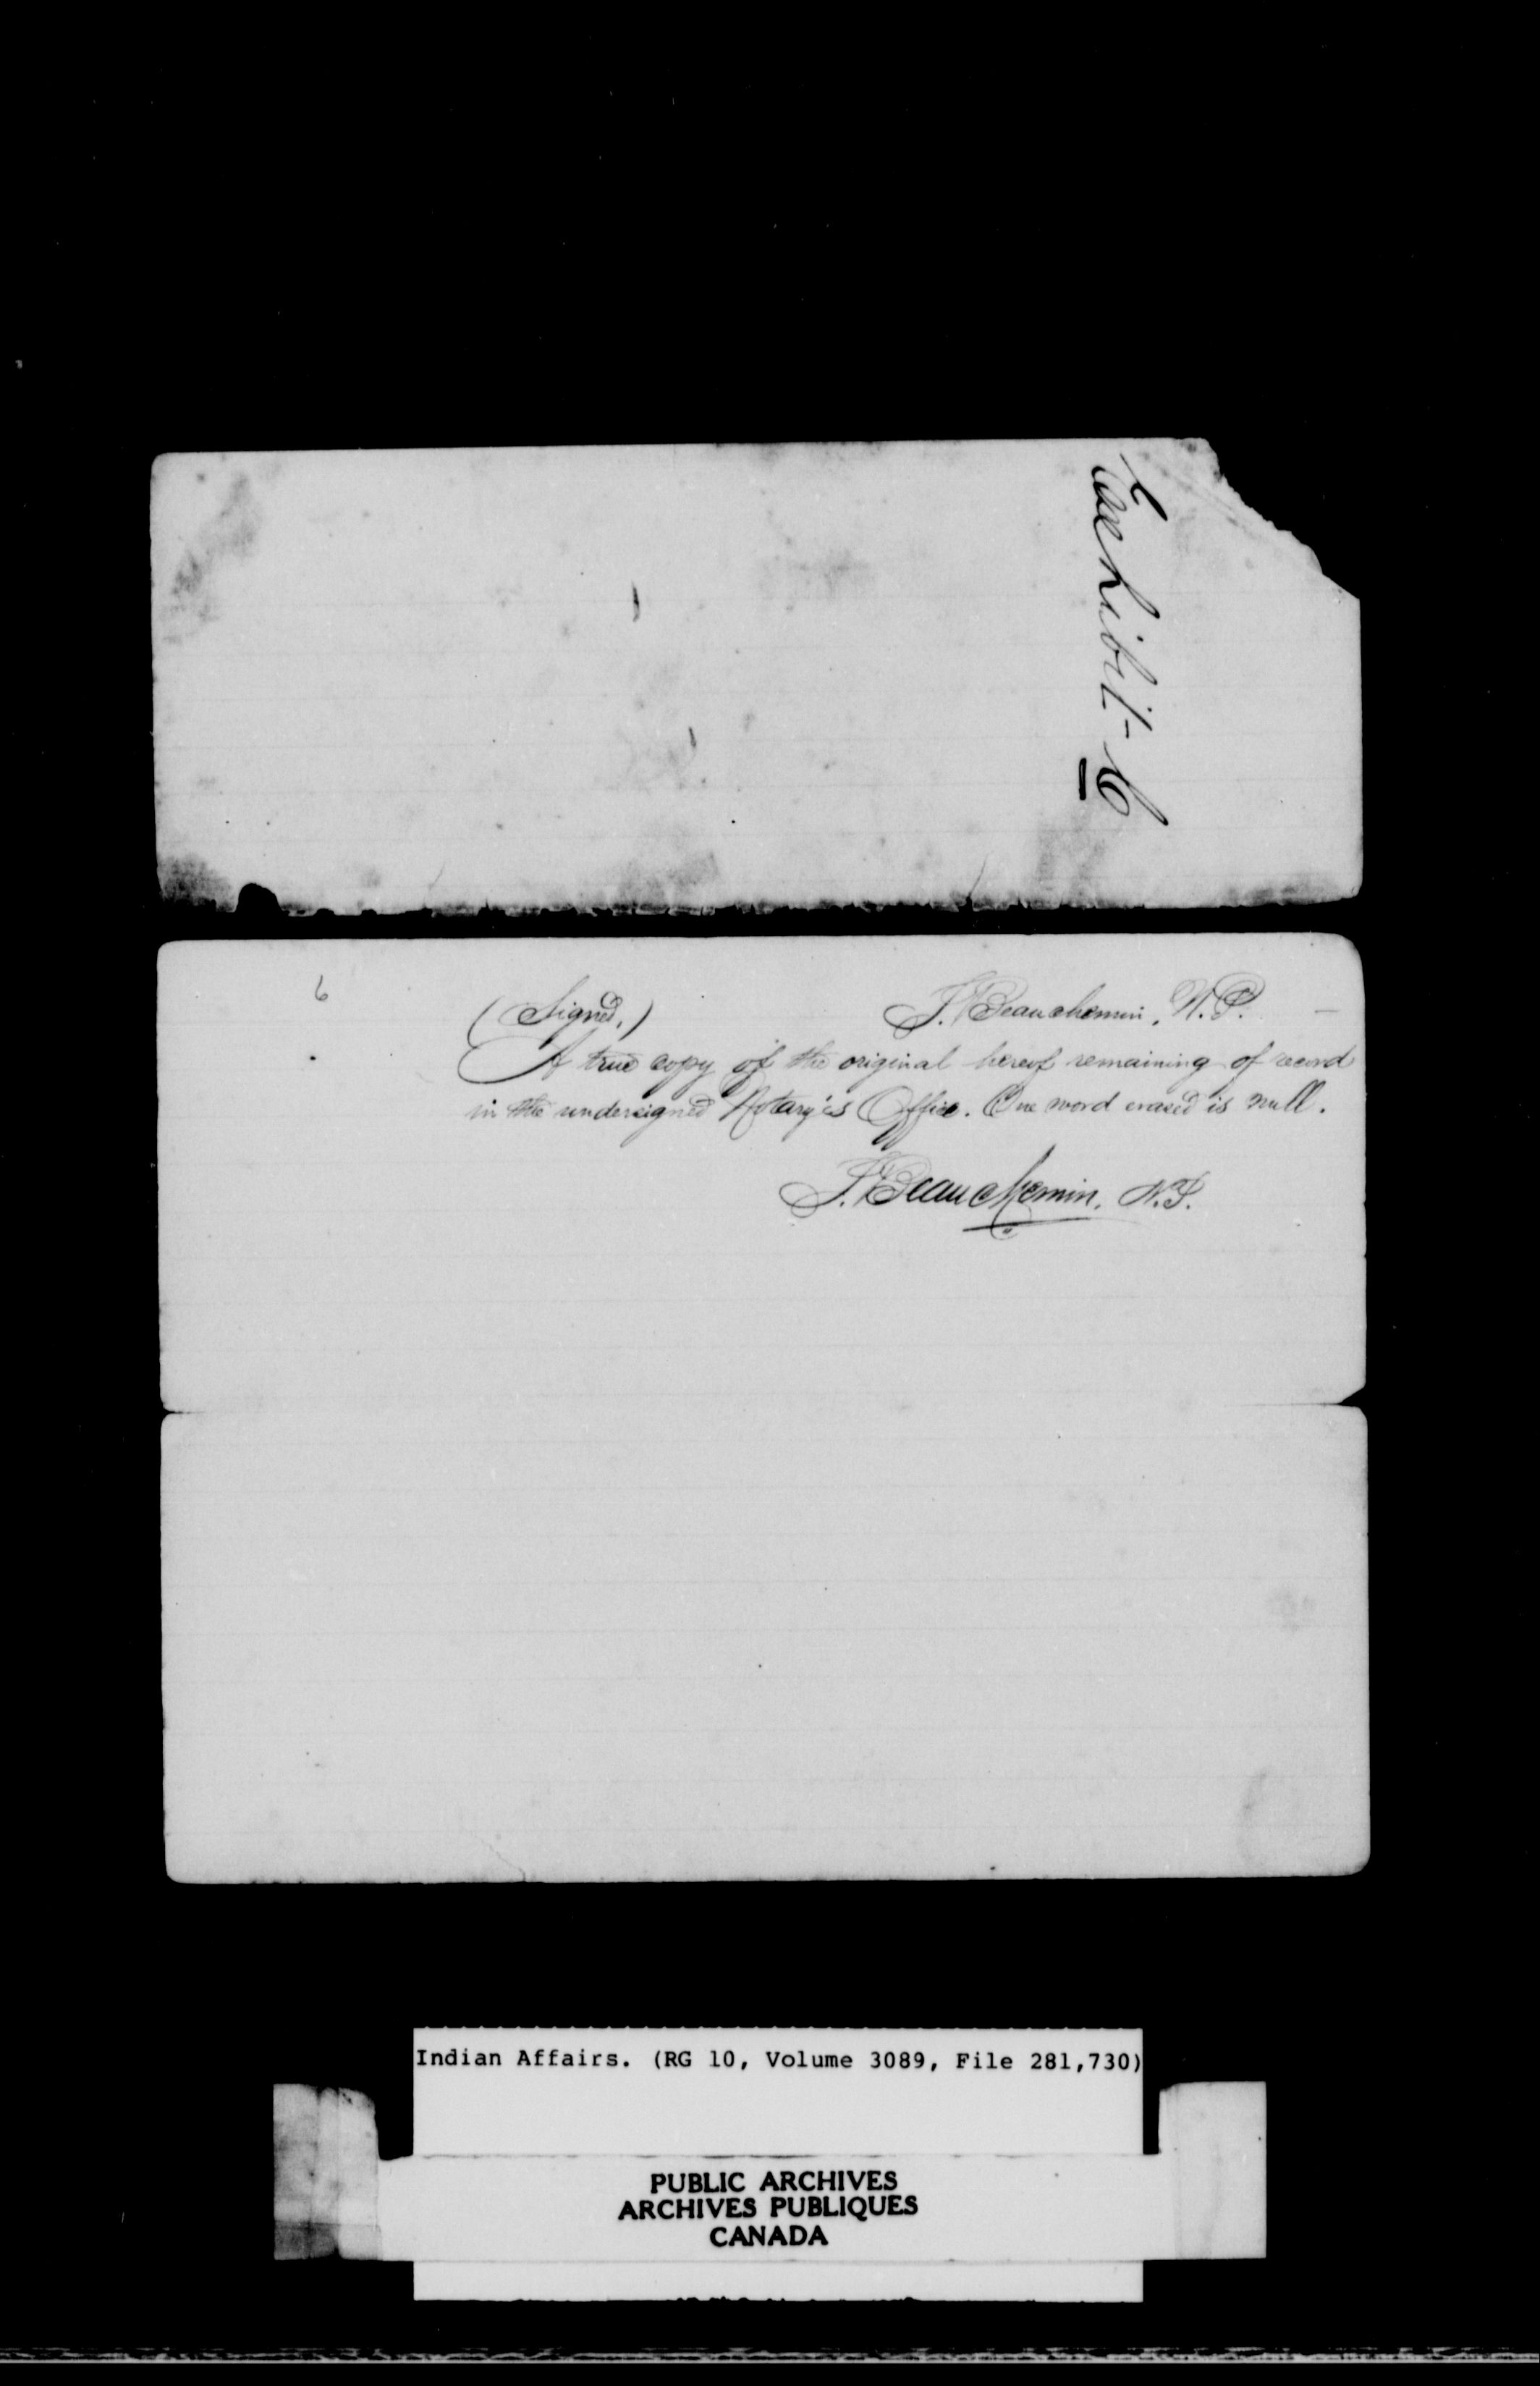 Exhibit - 6
6
(Signed,) J. Beauchemin, N.P.
A true copy of the original hereof remaining of record
in the undersigned Notary's Office. One word erased is null.
J. Beauchemin, N.P.
Indian Affairs. (RG 10, Volume 3089, File 281,730)
PUBLIC ARCHIVES
ARCHIVES PUBLIQUES
CANADA